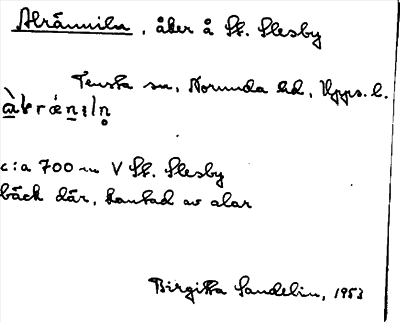 Alrännila, åker å St. Slesby
Tensta sn, Norunda hd, Upps. l.
c:a 700 m V St. Slesby
bäck där, kantad av alar
Birgitta Sandelin, 1953